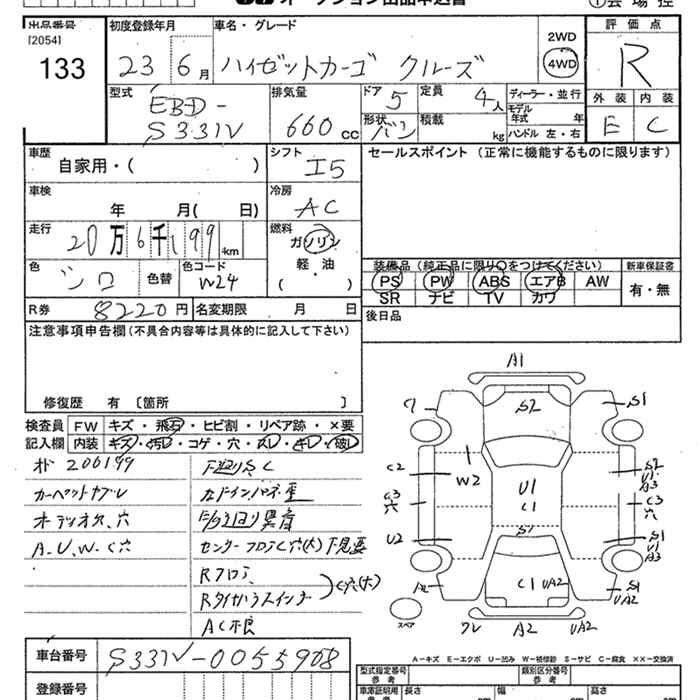 オークション出品申込書
①会場控
出品番号 初度登録年月 車名・グレード 評価点
[2054] 133 23年 6月 ハイゼットカーゴ クルーズ 2WD 4WD R
型式 EBD-S331V 排気量 660cc ドア 5 定員 4人 形状 バン 積載 kg ディーラー・並行 モデル年式 年 ハンドル 左・右 外装 E 内装 C
車歴 自家用・( ) シフト I5 セールスポイント (正常に機能するものに限ります)
車検 年 月( 日) 冷房 AC
走行 20万6千199km 燃料 ガソリン 軽・油 ( ・ )
色 シロ 色替 色コード W24
装備品 (純正品に限り○をつけてください) 新車保証書
PS PW ABS エアB AW 有・無
SR ナビ TV カワ
R券 8220円 名変期限 月 日 後日品
注意事項申告欄(不具合内容等は具体的に記入して下さい)
修復歴 有 [箇所 ]
検査員記入欄 FW キズ・飛石・ヒビ割・リペア跡・×要
内装 キズ・汚レ・コゲ・穴・スレ・キレ・破レ
オド 206199 下廻りSC
カーペットヌレ
オーディオ欠、穴 異音
A.U.W.C穴 センターフロアC穴(大)下見要
Rフロア
C穴(大)
AC不良
A1
S2
S1
ワレ
W2
U1
C1
S1
C1 UA2
C2
C3
穴
U2
A2
S2
U1
A3
C3
穴
S1
U1
A3
S1
UA2
スペア
ワレ A2 UA2
車台番号 S331V-0055908
登録番号
A-キズ E-エクボ U-凹み W-補修跡 S-サビ C-腐食 ××-交換済
型式指定番号 参考 類別区分番号 参考
車庫証明用 参考 長さ cm 幅 cm 高さ cm